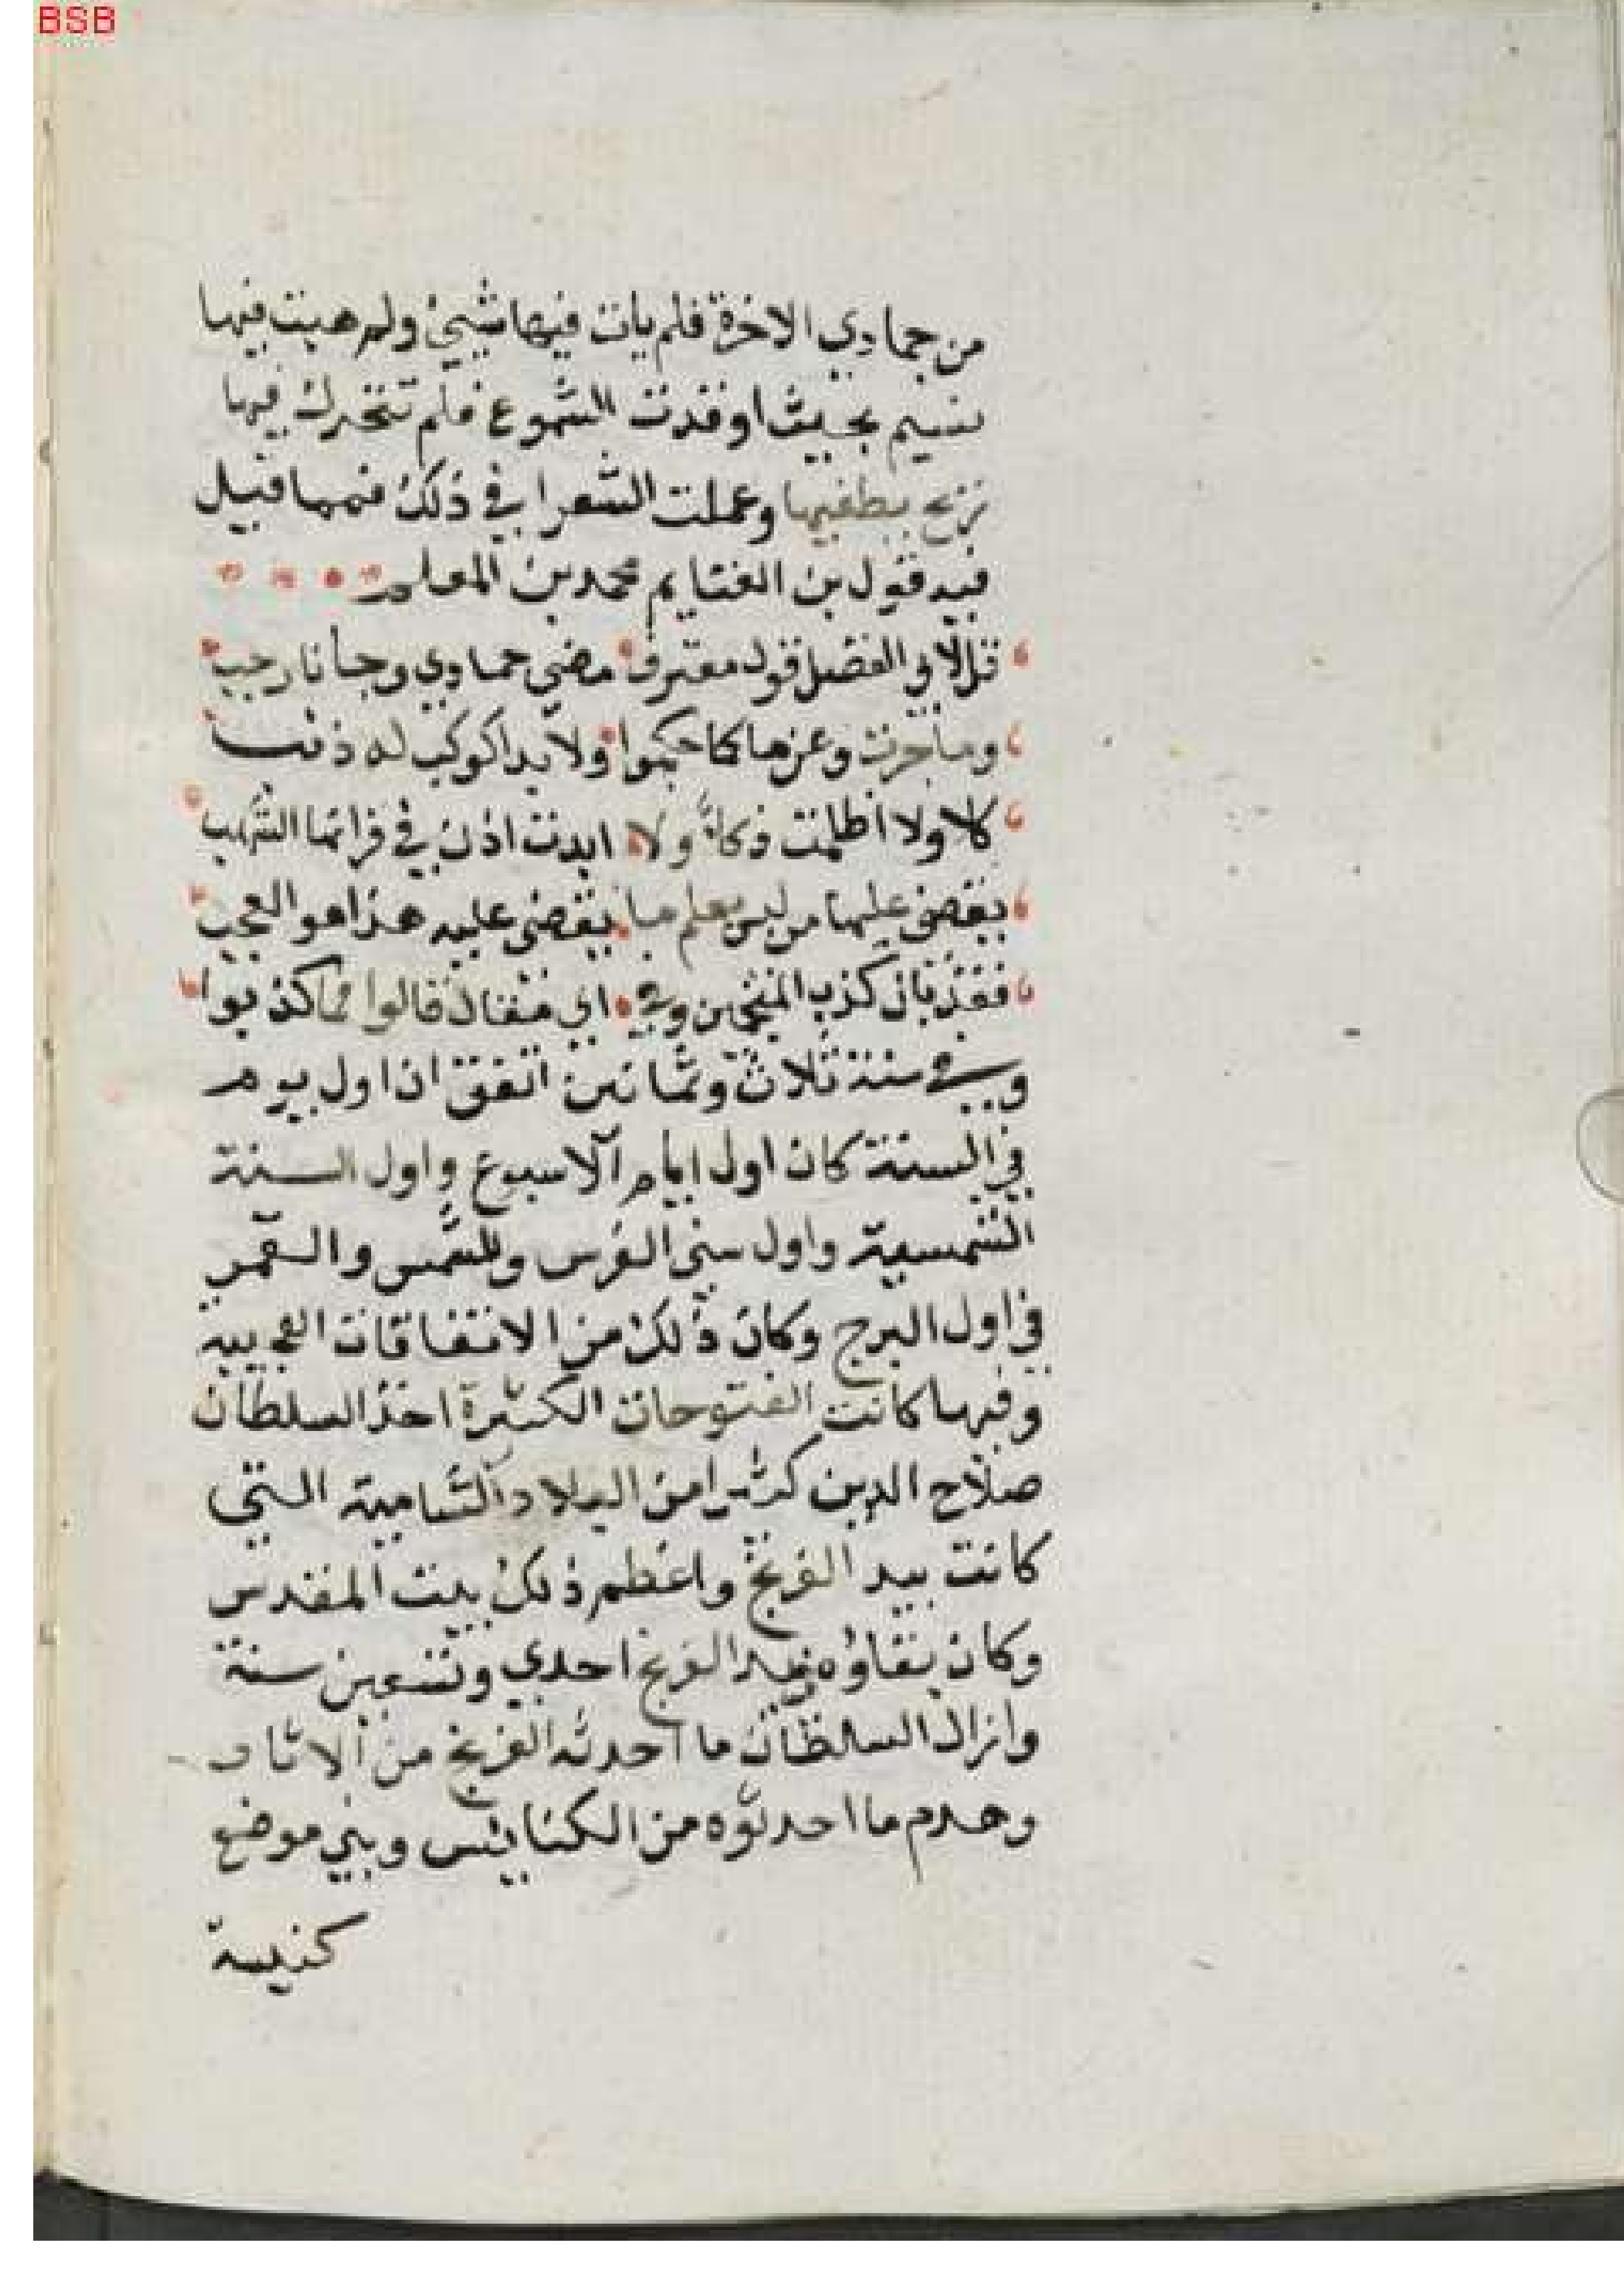 BSB
من جمادي الاخرة فلم يات فيها شيئ ولم هبت فيها
نسيم بحيث اوقدت الشموع فلم تتحرك فيها
ريح يطفيها وعملت الشعرا في ذلك فمما قيل
فيه قول بن الغنايم محمد بن المعلم
قل لابي الفضل قول معترف مضي جمادي وجانا رجب
وما جرت وعزعا كما حكموا ولا بدا كوكب له ذنب
كلا ولا اظلمت ذكاء ولا ابدت اذن في قرانها الشهب
يقضي عليها من ليس يعلم ما يقضي عليه هذا هو العجب
فقد بان كذب المنجمين وفي اي مقال قالوا مما كذبوا
وفي سنة ثلاث وثمانين اتفق ان اول يوم
في السنة كان اول ايام الاسبوع واول السنة
الشمسية واول سني الفرس والشمس والقمر
في اول البرج وكان ذلك من الاتفاقات العجيبة
وفيها كانت الفتوحات الكثيرة اخذ السلطان
صلاح الدين كثيرا من البلاد الشامية التي
كانت بيد الفرنج واعظم ذلك بيت المقدس
وكان بقاؤه بيد الفرنج احدي وتسعين سنة
وازال السلطان ما احدثه الفرنج من الاثار
وهدم ما احدثوه من الكنايس وبني موضع
كنيسة